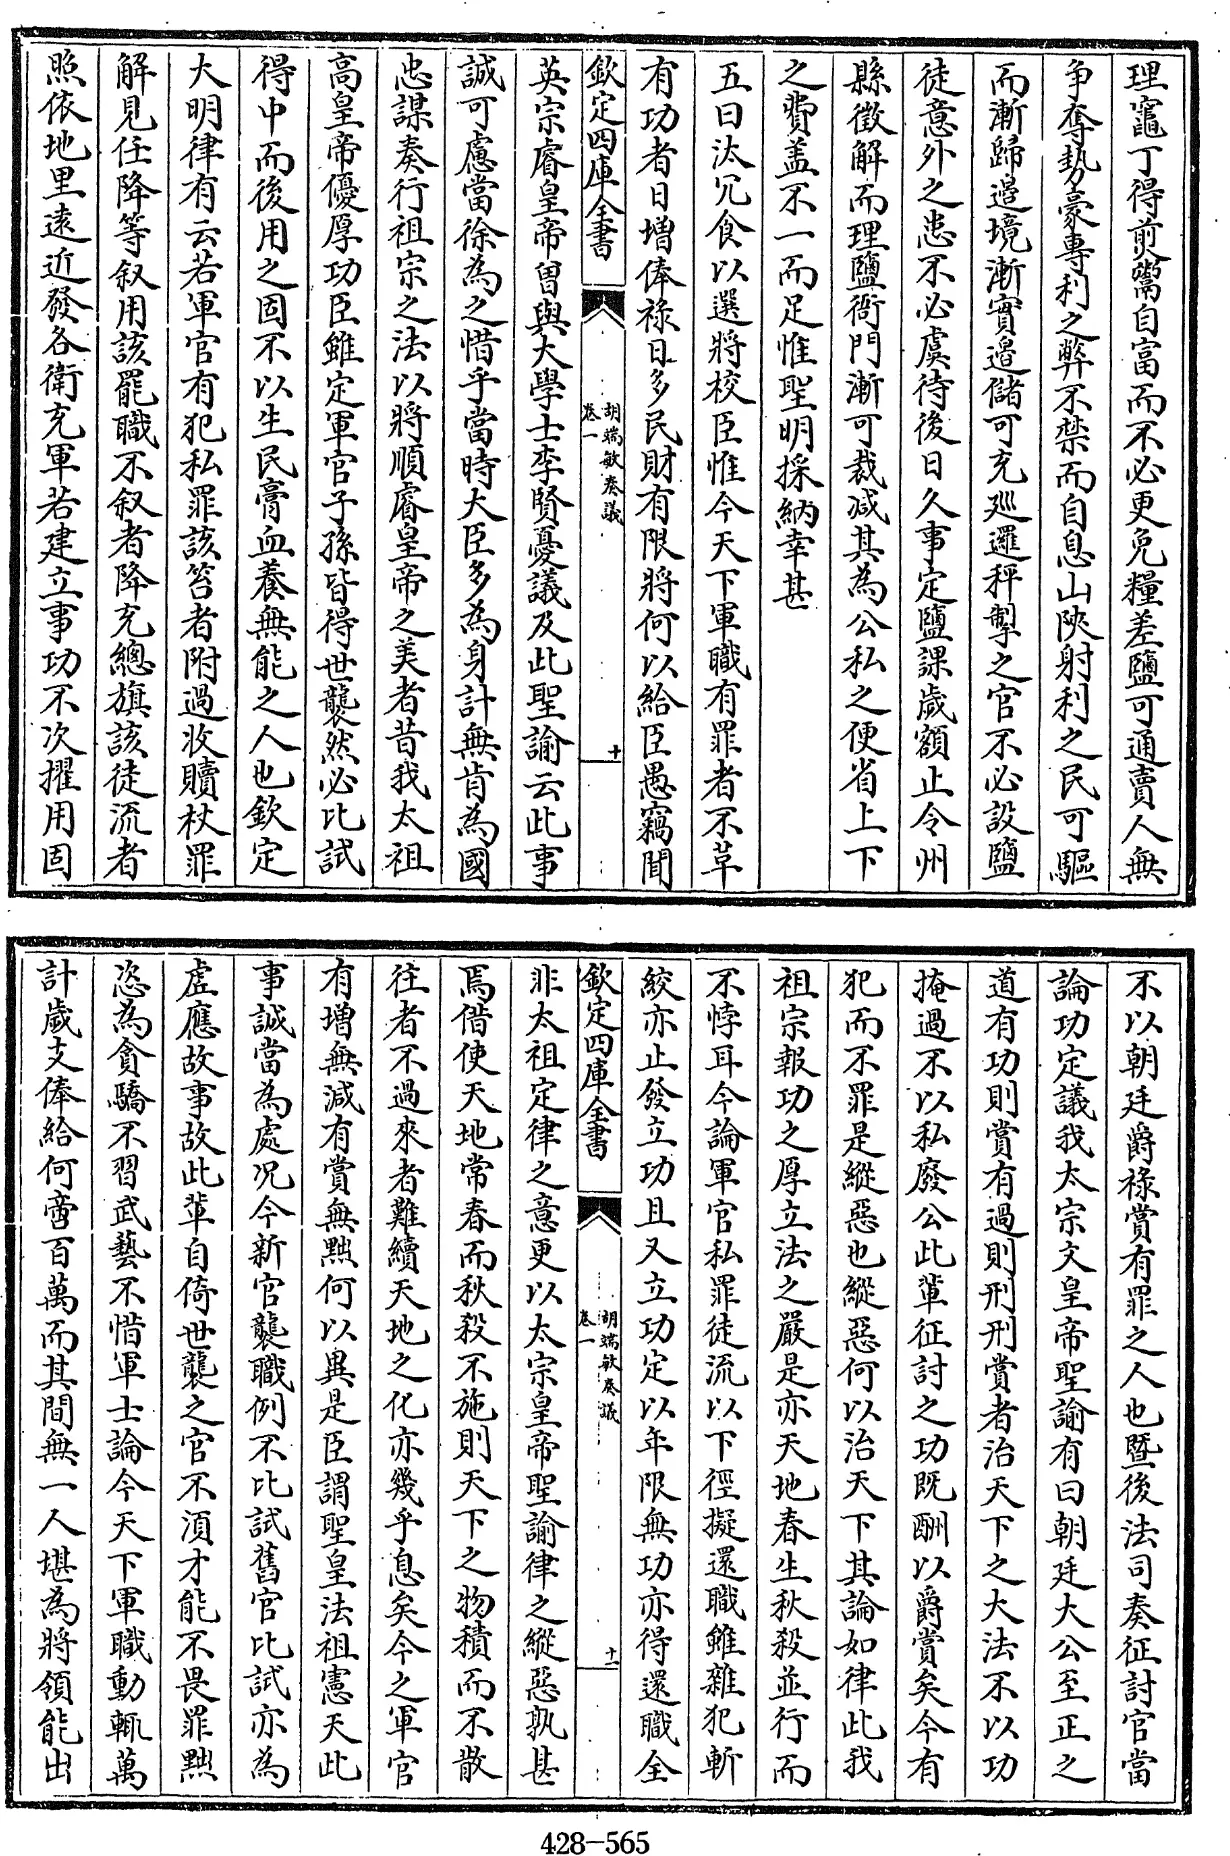 理竈丁得煎鬻自富而不必更免糧差鹽可通賣人無
争奪勢豪專利之弊不禁而自息山陜射利之民可驅
而漸歸邉境漸實邉儲可充廵邏秤掣之官不必設鹽
徒意外之患不必虞待後日久事定鹽課歲額止令州
縣徵解而理鹽衙門漸可裁减其為公私之便省上下
之費盖不一而足惟聖明採納幸甚
五曰汰冗食以選將校臣惟今天下軍職有罪者不革
有功者日增俸祿日多民財有限將何以給臣愚竊聞
欽定四庫全書
胡端敏奏議
卷一
十
英宗睿皇帝曾與大學士李賢憂議及此聖諭云此事
誠可慮當徐為之惜乎當時大臣多為身計無肯為國
忠謀奏行祖宗之法以將順睿皇帝之美者昔我太祖
高皇帝優厚功臣雖定軍官子孫皆得世襲然必比試
得中而後用之固不以生民膏血養無能之人也欽定
大明律有云若軍官有犯私罪該笞者附過收贖杖罪
解見任降等叙用該罷職不叙者降充總旗該徒流者
照依地里遠近發各衛充軍若建立事功不次擢用固
不以朝廷爵祿賞有罪之人也暨後法司奏征討官當
論功定議我太宗文皇帝聖諭有曰朝廷大公至正之
道有功則賞有過則刑刑賞者治天下之大法不以功
掩過不以私廢公此輩征討之功既酬以爵賞矣今有
犯而不罪是縱惡也縱惡何以治天下其論如律此我
祖宗報功之厚立法之嚴是亦天地春生秋殺並行而
不悖耳今論軍官私罪徒流以下徑擬還職雖雜犯斬
絞亦止發立功且又立功定以年限無功亦得還職全
欽定四庫全書
胡端敏奏議
卷一
十一
非太祖定律之意更以太宗皇帝聖諭律之縱惡孰甚
焉借使天地常春而秋殺不施則天下之物積而不散
往者不過來者難續天地之化亦幾乎息矣今之軍官
有增無減有賞無黜何以異是臣謂聖皇法祖憲天此
事誠當為處况今新官襲職例不比試舊官比試亦為
虛應故事故此輩自倚世襲之官不須才能不畏罪黜
恣為貪驕不習武藝不惜軍士論今天下軍職動輒萬
計歲支俸給何啻百萬而其間無一人堪為將領能出
428-565